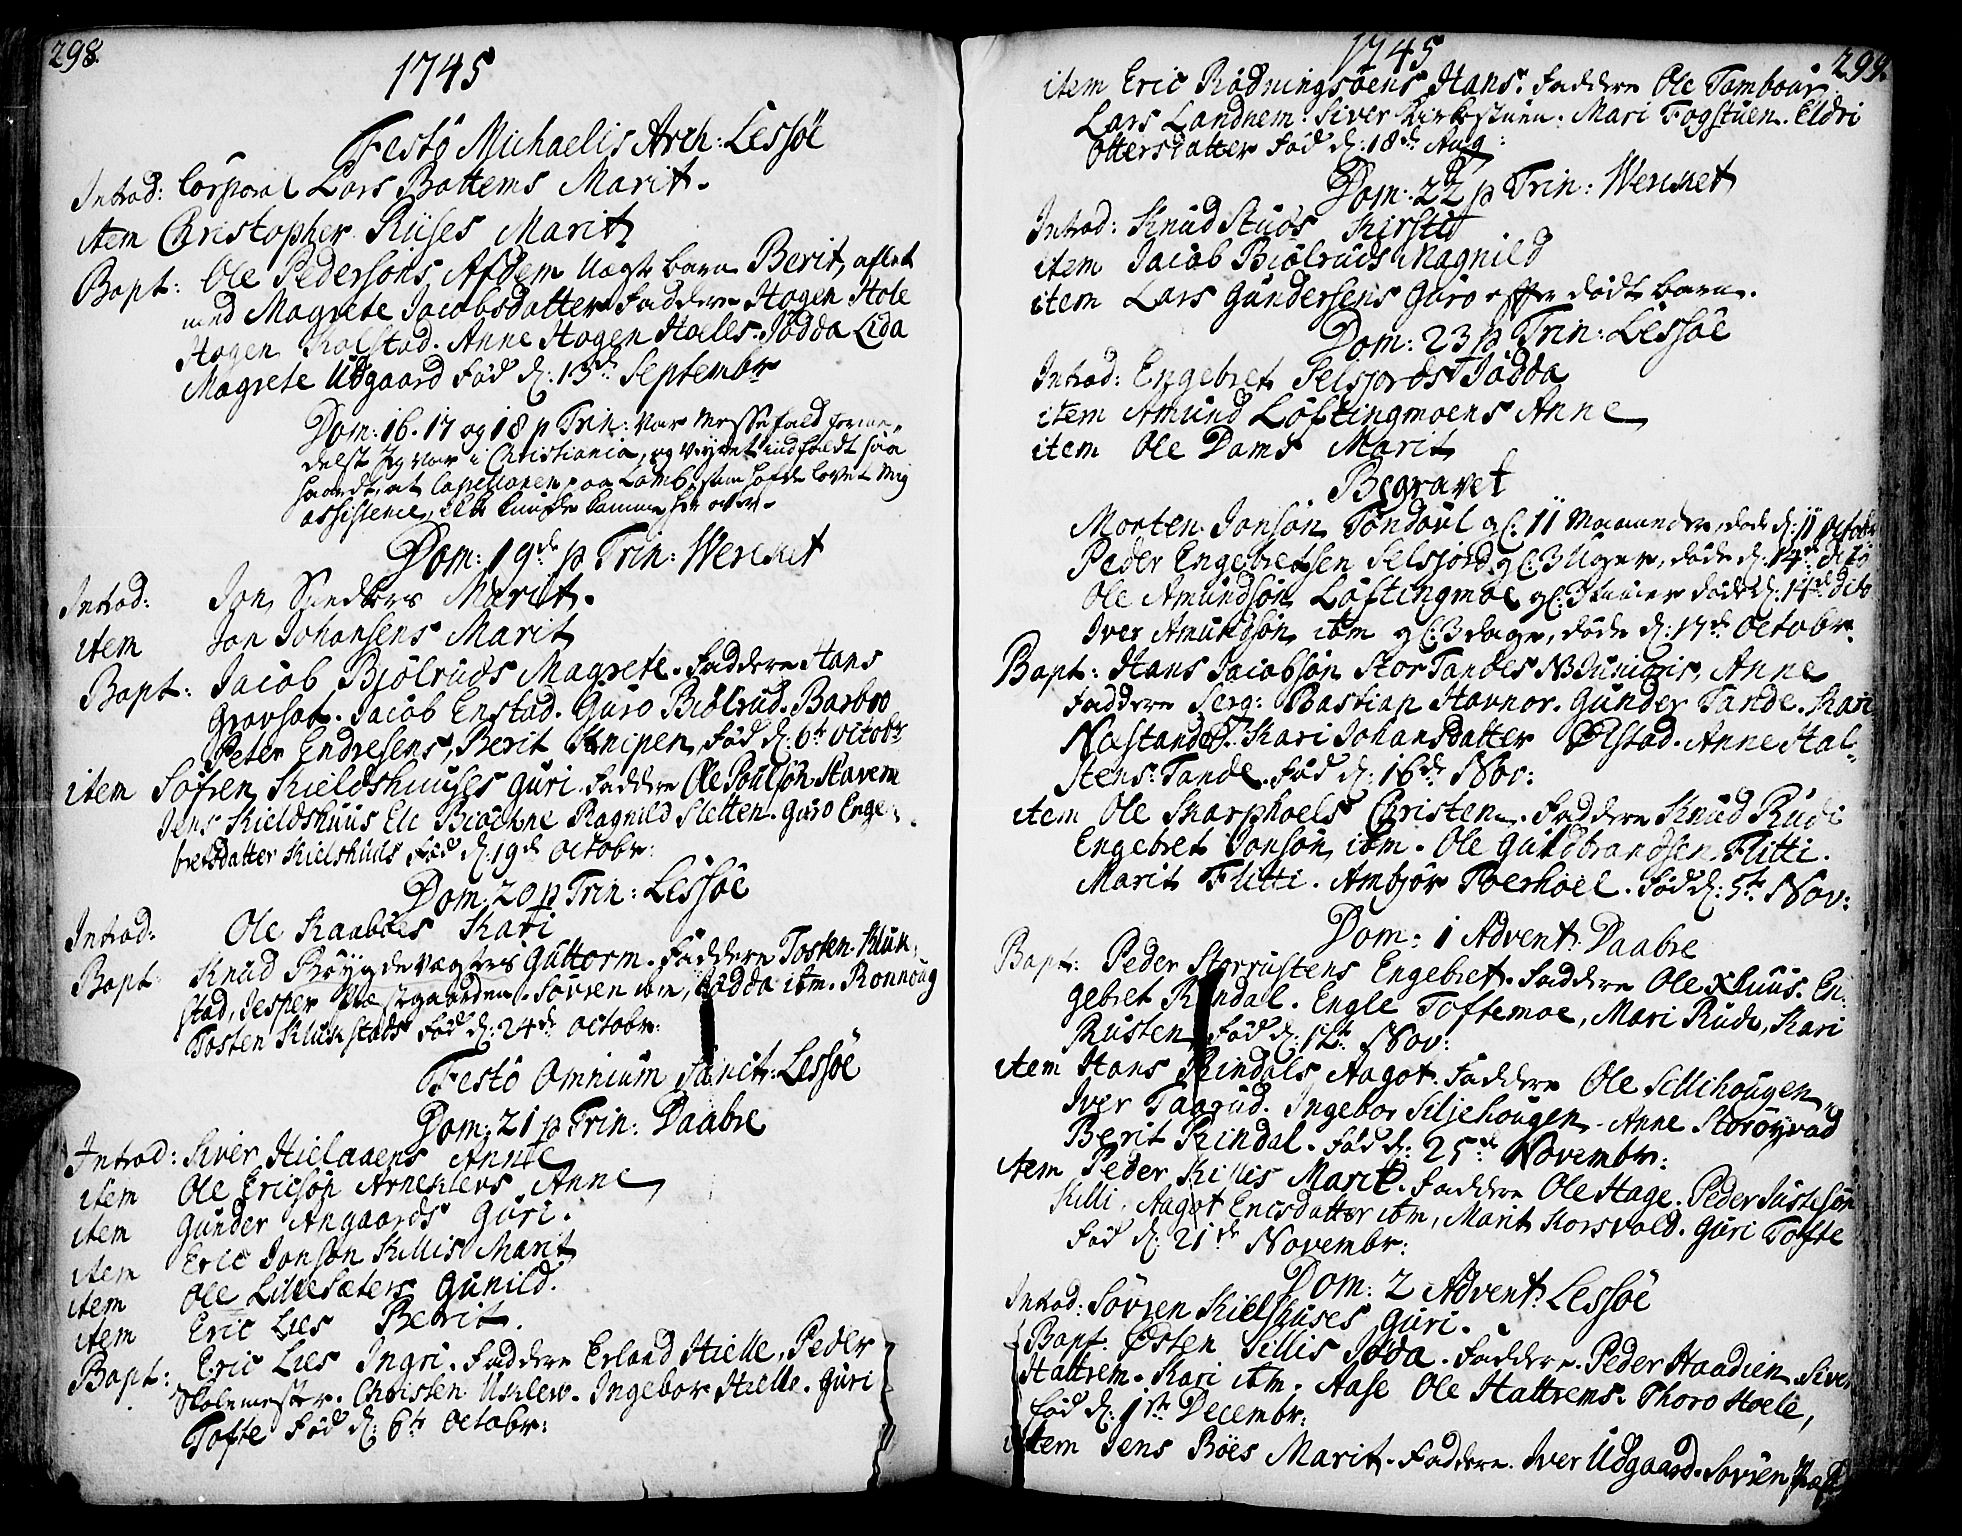 298.
1745
Festo Michaelis Arch: Lessøe
Introd: Corporal Lars Bottems Marit.
item Christopher Ruses Marit
Bapt: Ole Pedersøns Afdem Uægte barn Berit, aflet
med Magrete Jacobsdatter Faddere Hagen Hole
Hagen Kolstad. Anne Hagen Holes. Jødda Lida
Magrete Udgaard Fød d: 13de Septembr
Dom: 16. 17 og 18 p Trin: var Messefald forme-
delst Jeg var i Christiania, og Veyret indfaldt saa
haardt, at Capellanen paa Lomb, som hafde lovet Mig
assistence, ikke kunde komme her over.
Dom: 19de p Trin: Wercket
Introd: Jon Marit.
item Jon Johansens Marit
Bapt: Jacob Bjølruds Magrete. Faddere Hans
Gravsat. Jacob Enstad. Guro Biølrud. Barbro
Peter Endresens, Berit Knipen, Fød d: 6te Octobr
item Søfren Kieldshuuses Guri. Faddere Ole Poulsøn Stavem
Jens Kieldshuus Ele Ragnild Sletten. Guro Enge-
bretsdatter Kielshuus Fød d: 19de Octobr:
Dom: 20 p Trin: Lessøe
Introd: Ole Raabøes Kari
Bapt: Knud Guttorm. Faddere Tosten Kluk-
stad, Jesper Søvren ibm, Jødda ibm. Ronnoug
Tosten Klukstads Fød d: 24de Octobr:
Festo Omnium Sanct: Lessøe
Dom: 21 p Trin: Daabre
Introd: Siver Hielaaens Anne
item Ole Ericsøn Arneklevs Anne
item Gunder Angaards Guri.
item Eric Jonsøn Killis Marit
item Ole Lillesæters Gunild.
item Eric Lies Berit.
Bapt: Eric Lies Ingri. Faddere Erland Hielle, Peder
Skolemester. Christen Uhlew. Ingebor Hielle. Guri
Tofte Fød d: 6te Octobr:
1745
299.
item Eric Rødningsøens Hans. Faddere Ole Tambour.
Lars Landhem. Siver Kirkestuen. Mari Fogstuen. Eldri
Ottersdatter Fød d: 18de Aug:
Dom: 22 p Trin: Wercket
Introd: Knud Stuos Kirsti
item Jacob Biølruds Magnild
item Lars Gundersens Guro efter dødt barn.
Dom: 23 p Trin: Lessøe
Introd: Engebret Selsjords Jødda
item Amund Løftingmoens Anne
item Ole Dams Marit
Begravet
Morten Jonsøn Tøndøul gl: 11 Maaneder, døde d: 11 Octobr
Peder Engebretsen Selsjord gl: 3 Uger, døde d: 14de dito
Ole Amundsøn Løftingmoe gl: døde d: 14de dito
Iver Amundsøn ibm gl: 3 dage, døde d: 17de Octobr.
Bapt: Hans Jacobsøn StorTandes NB Junioris, Anne
Faddere Serg: Bastian Havnor. Gunder Tande. Kari
Kari Johansdatter Ølstad. Anne Hal-
stens: Tande. Fød d: 16de Nov:
item Ole Skarphoels Christen. Faddere Knud Rudi
Engebret Jonsøn ibm. Ole Guldbrandsen Flitti.
Marit Flitti. Ambjør Toerhoel. Fød d: 5te Nov:
Dom: 1 Advent: Daabre
Bapt: Peder Storrustens Engebret. Faddere Ole Kluus. En-
gebret Rindal. Engle Toftemoe, Mari Rudi, Kari
Rusten Fød d: 12te Nov:
item Hans Rindals Aagot. Faddere Ole Sillihougen,
Iver Taarud. Ingebor Siljehougen. Anne Storøyvad
Berit Rindal. Fød d: 25de Novembr:
item Peder Killis Marit. Faddere Ole Hage. Peder Justesøn
Killi, Aagot Ericsdatter ibm, Marit Korsvold. Guri Tofte
Fød d: 21de Novembr:
Dom: 2 Advent: Lessøe
Introd: Søvren Kielshuses Guri.
Bapt. Østen Sillis Jøda. Faddere. Peder Haadien Siver
Hattrem. Kari ibm. Aase Ole Hattrems. Thoro Hoele,
Fød d: 1ste Decembr:
item Jens Bøes Marit. Faddere. Iver Udgaard. Søvren